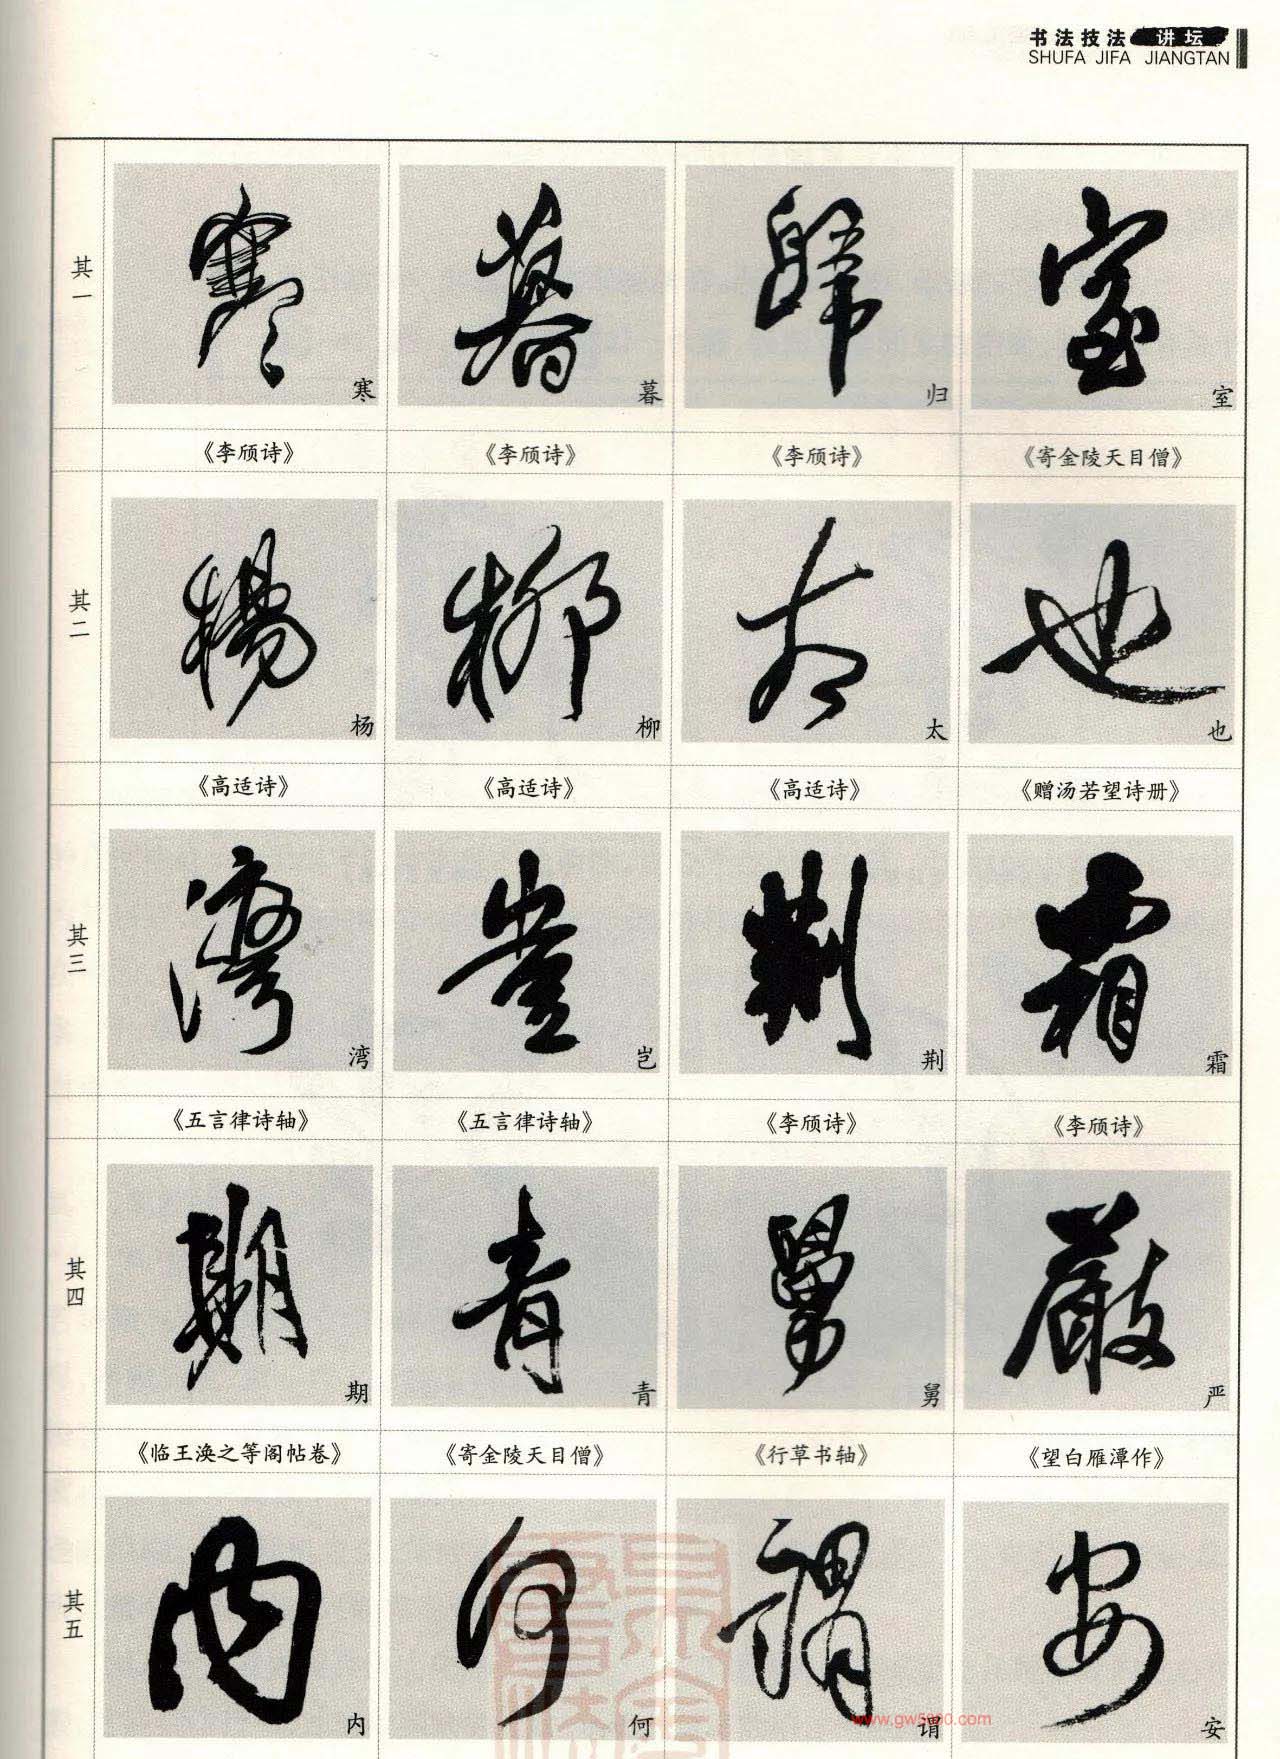 书法技法 讲坛
SHUFA JIFA JIANGTAN
其一
寒 暮 归 室
《李颀诗》 《李颀诗》 《李颀诗》 《寄金陵天目僧》
其二
杨 柳 太 也
《高适诗》 《高适诗》 《高适诗》 《赠汤若望诗册》
其三
湾 岂 荆 霜
《五言律诗轴》 《五言律诗轴》 《李颀诗》 《李颀诗》
其四
期 青 舅 严
《临王涣之等阁帖卷》 《寄金陵天目僧》 《行草书轴》 《望白雁潭作》
其五
内 何 谓 安